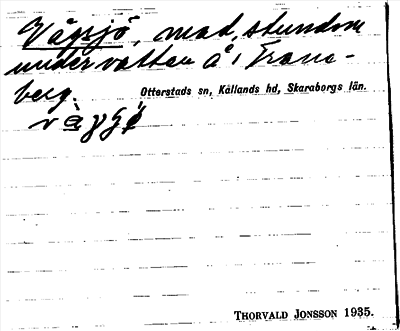 Vågsjö, mad, stundom
under vatten å i Trane-
berg.
Otterstads sn, Kållands hd, Skaraborgs län.
THORVALD JONSSON 1935.